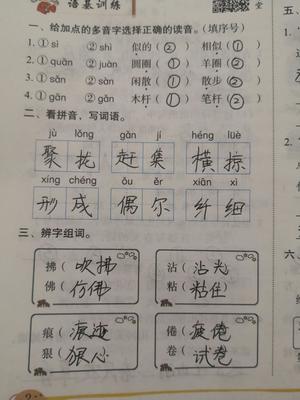 语基训练 堂
一、给加点的多音字选择正确的读音。(填序号)
1. ①sì ②shì 似的(②) 相似(①)
2. ①quān ②juàn 圆圈(①) 羊圈(②)
3. ①sǎn ②sàn 闲散(①) 散步(②)
4. ①gān ②gǎn 木杆(①) 笔杆(②)
二、看拼音,写词语。
jù lǒng gǎn jí héng lüè
聚拢 赶集 横掠
xíng chéng ǒu ěr xiān xì
形成 偶尔 纤细
三、辨字组词。
拂(吹拂 沾(沾光
佛(仿佛 粘(粘住
痕(痕迹 倦(疲倦
狠(狠心 卷(试卷
五、
1.
2.
3.
六